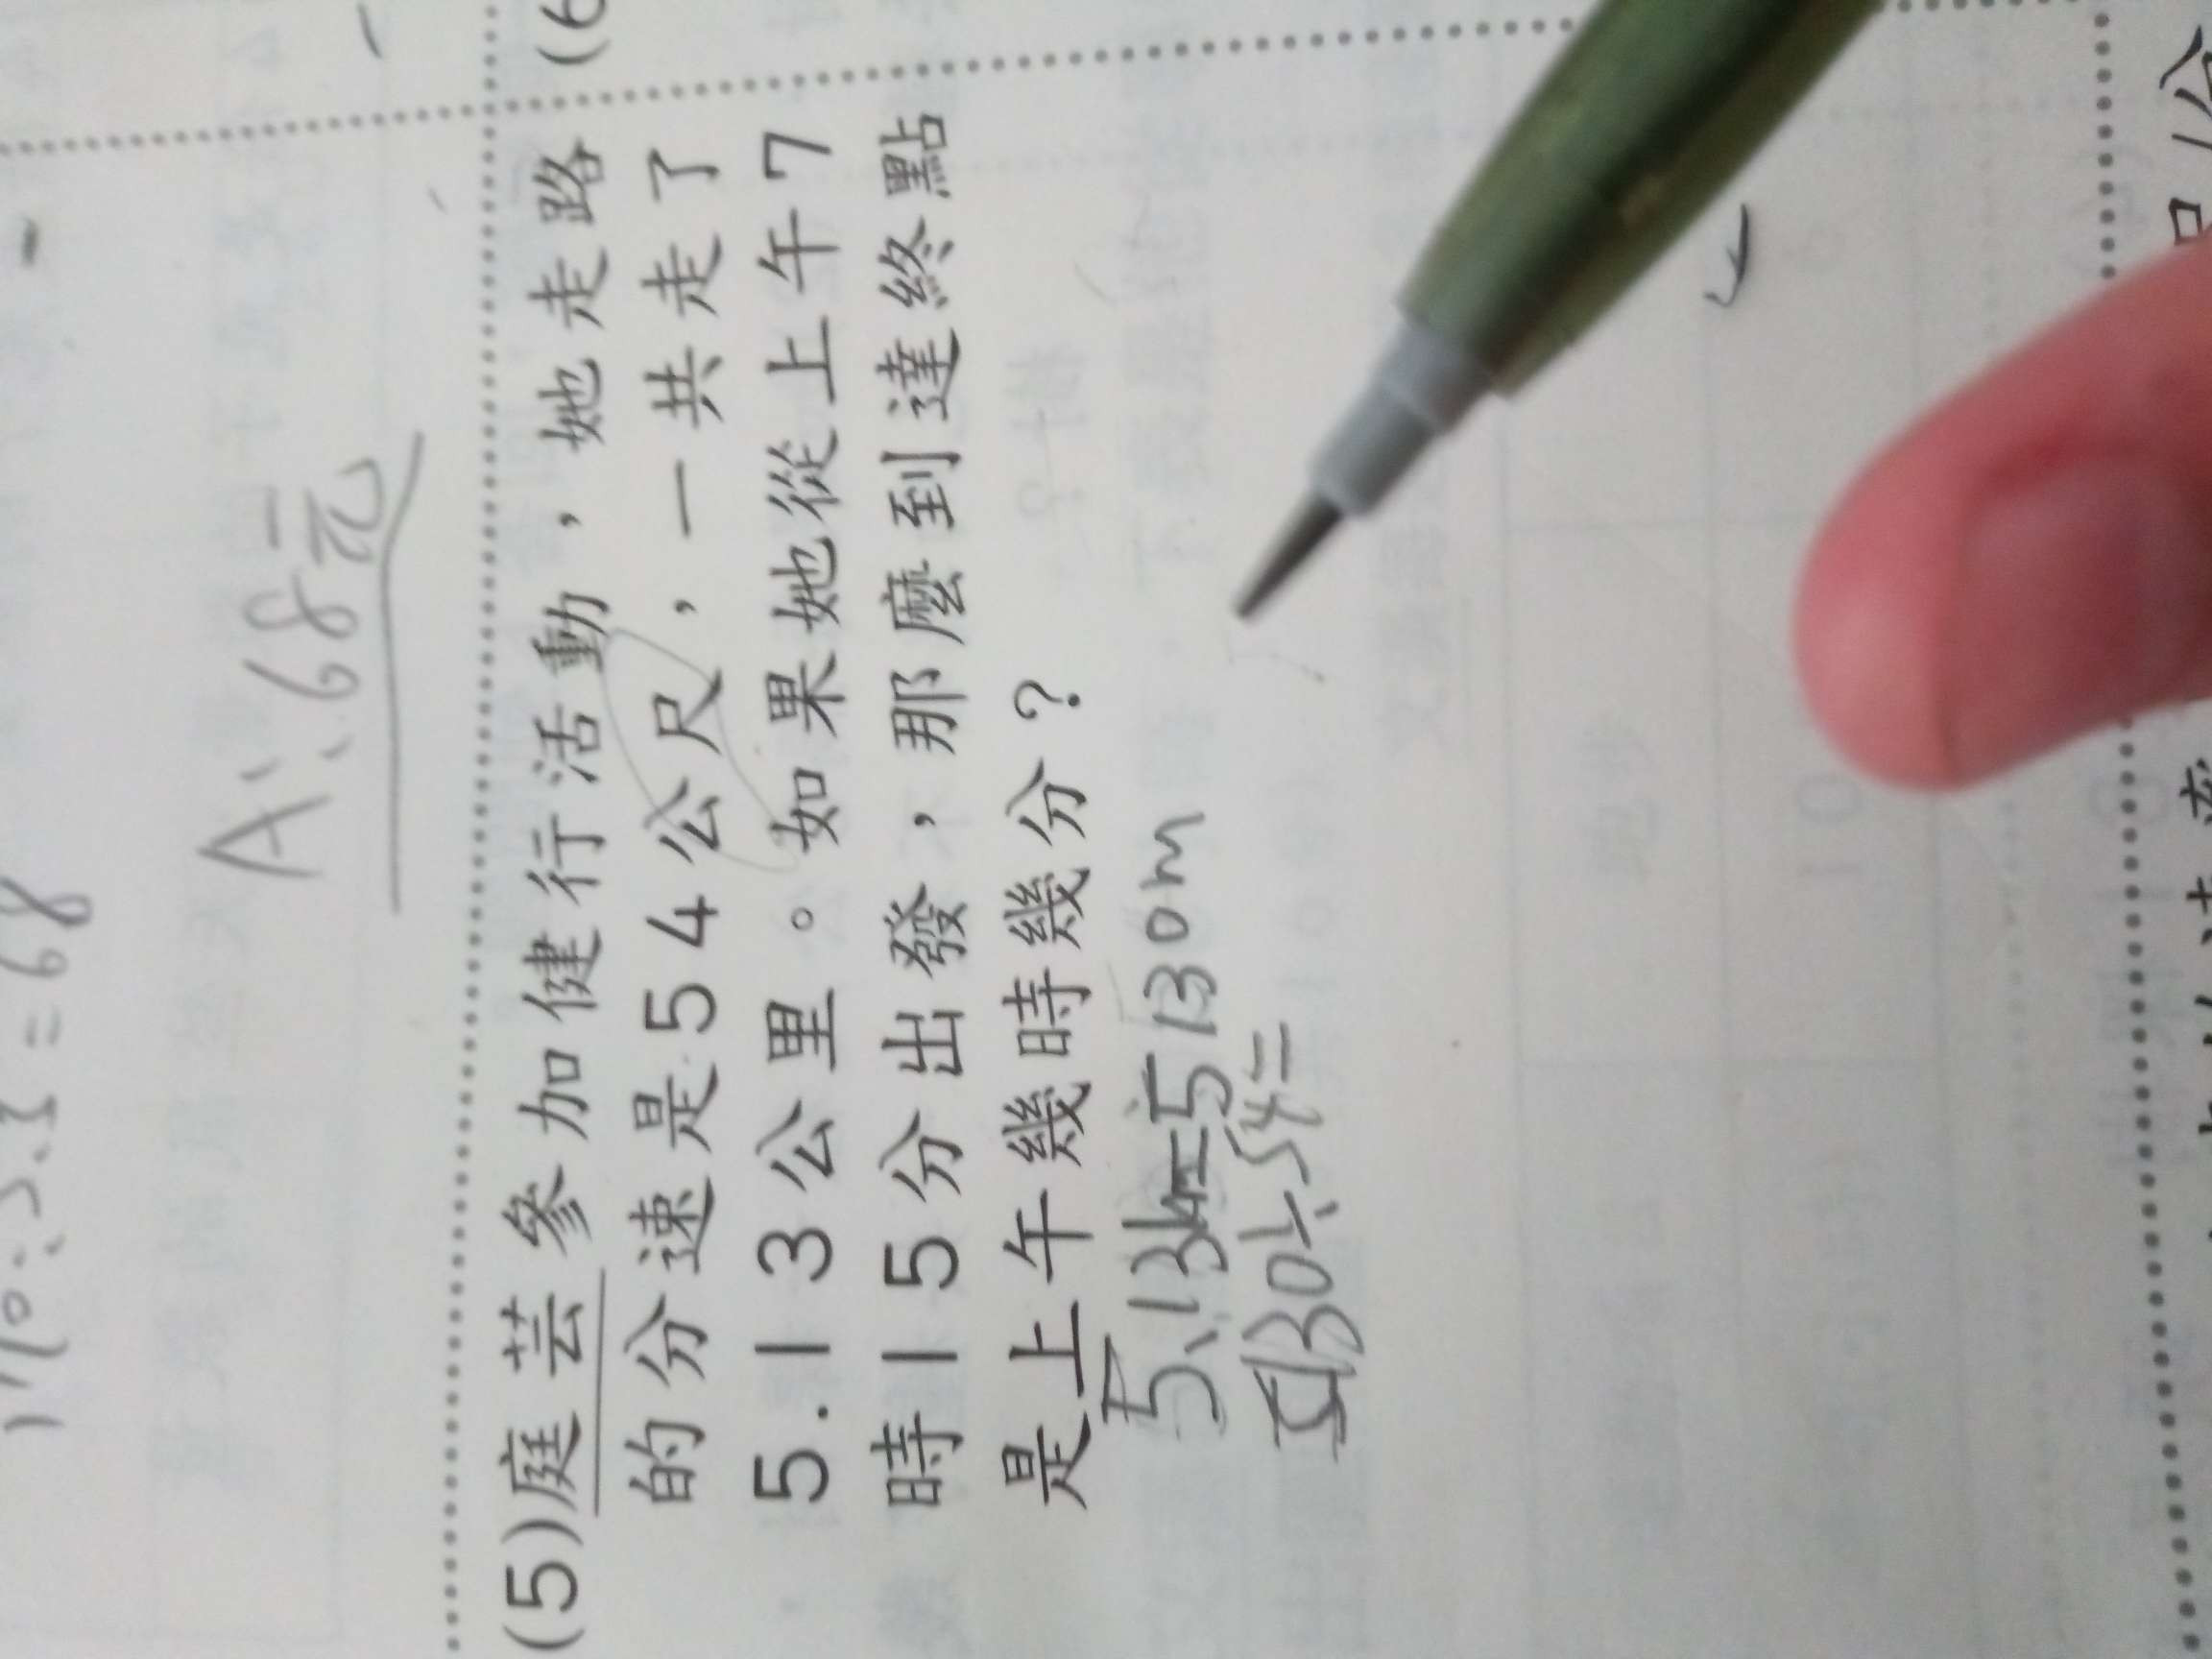 =68
A:68元
(5)庭芸參加健行活動，她走路
的分速是54公尺，一共走了
5.13公里。如果她從上午7
時15分出發，那麼到達終點
是上午幾時幾分？
5.13km=5130m
5130÷54=
(6